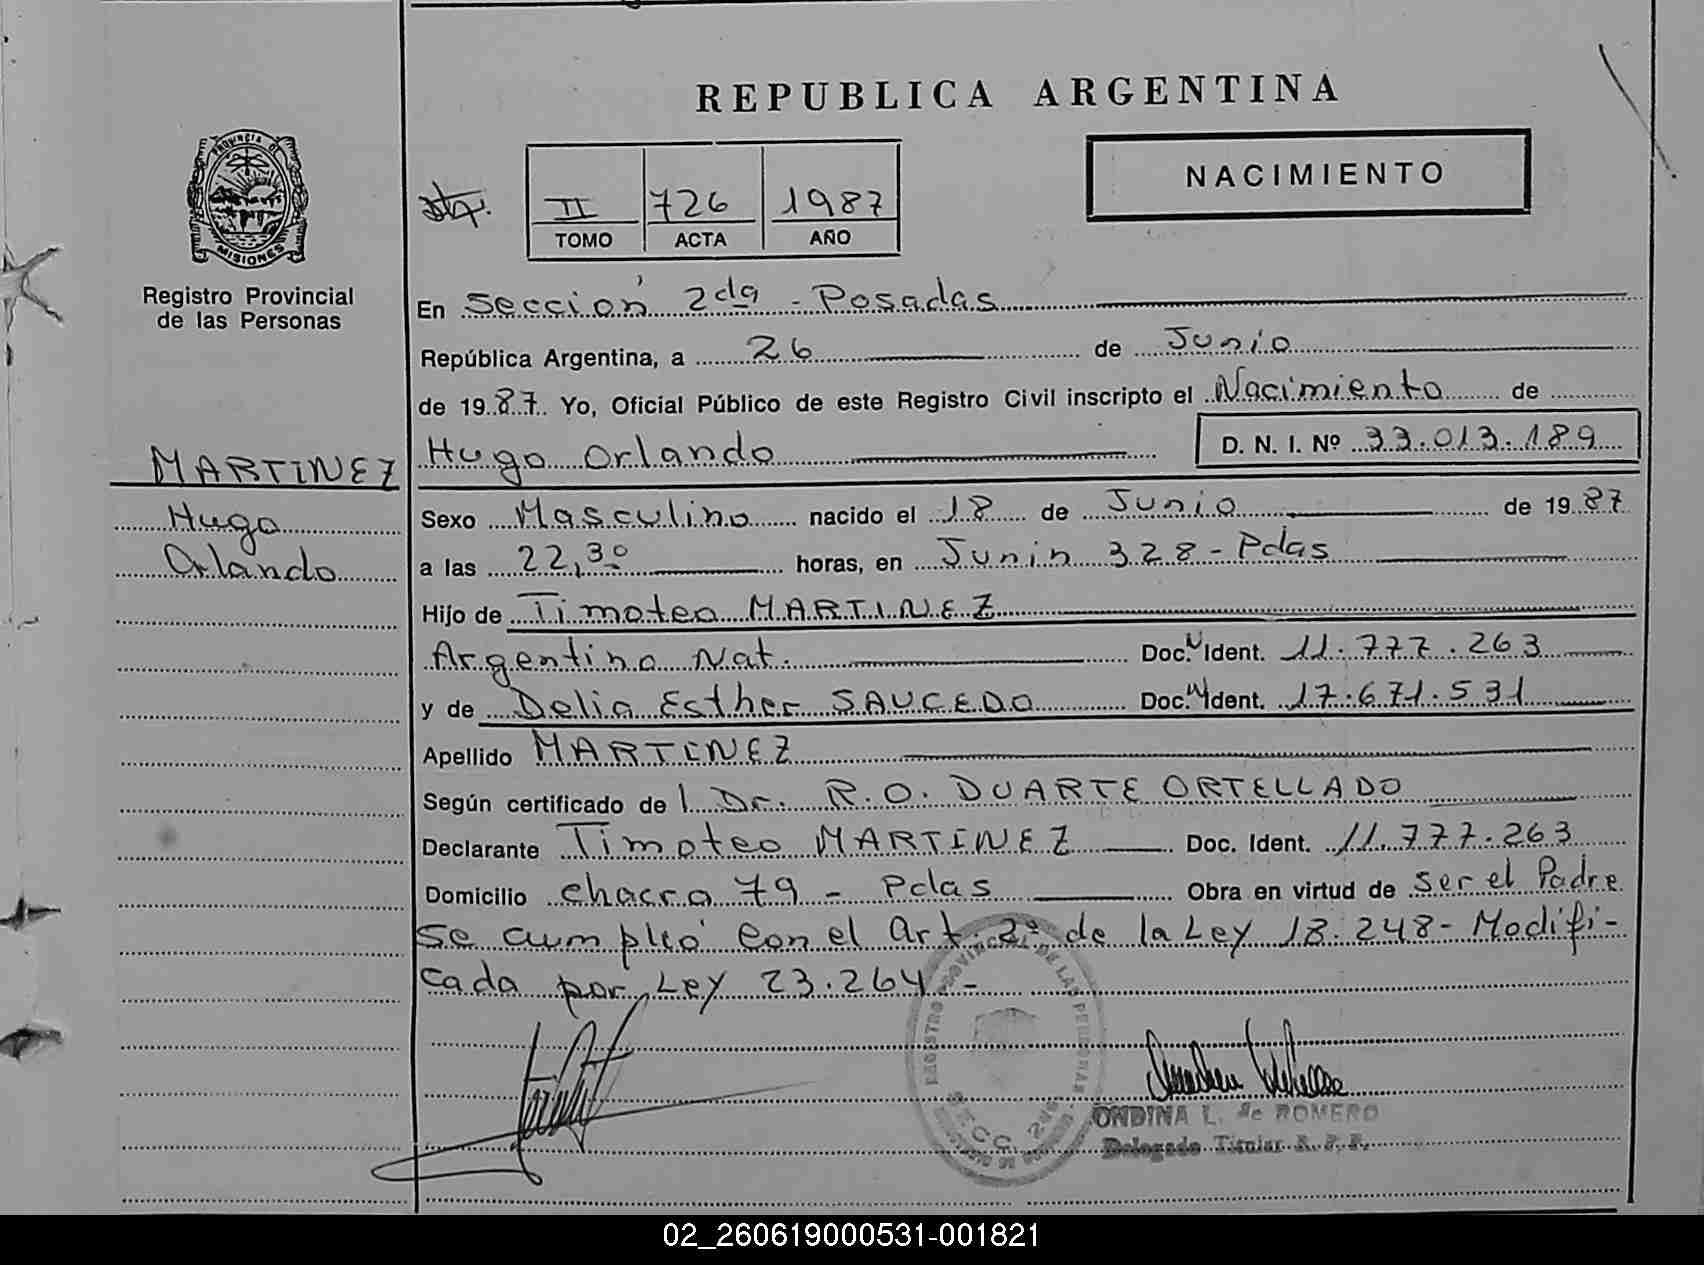 REPUBLICA ARGENTINA
PROVINCIA DE
MISIONES
Registro Provincial
de las Personas
II 726 1987
TOMO ACTA AÑO
NACIMIENTO
En Sección 2da - Posadas
República Argentina, a 26 de Junio
de 1987 Yo, Oficial Público de este Registro Civil inscripto el Nacimiento de
Hugo Orlando D. N. I. Nº 33.013.189
MARTINEZ
Hugo
Orlando
Sexo Masculino nacido el 18 de Junio de 1987
a las 22,30 horas, en Junin 328 - Pdas
Hijo de Timoteo MARTINEZ
Argentino Nat. Doc. Ident. 11.777.263
y de Delia Esther SAUCEDO Doc. Ident. 17.671.531
Apellido MARTINEZ
Según certificado de l Dr. R.O. DUARTE ORTELLADO
Declarante Timoteo MARTINEZ Doc. Ident. 11.777.263
Domicilio chacra 79 - Pdas Obra en virtud de ser el Padre
Se cumplió con el Art. 2º de la Ley 18.248 - Modifi-
cada por Ley 23.264 -
REGISTRO PROVINCIAL DE LAS PERSONAS
SECC. 2da
ONDINA L. de ROMERO
Delegado Titular R. P. P.
02_260619000531-001821